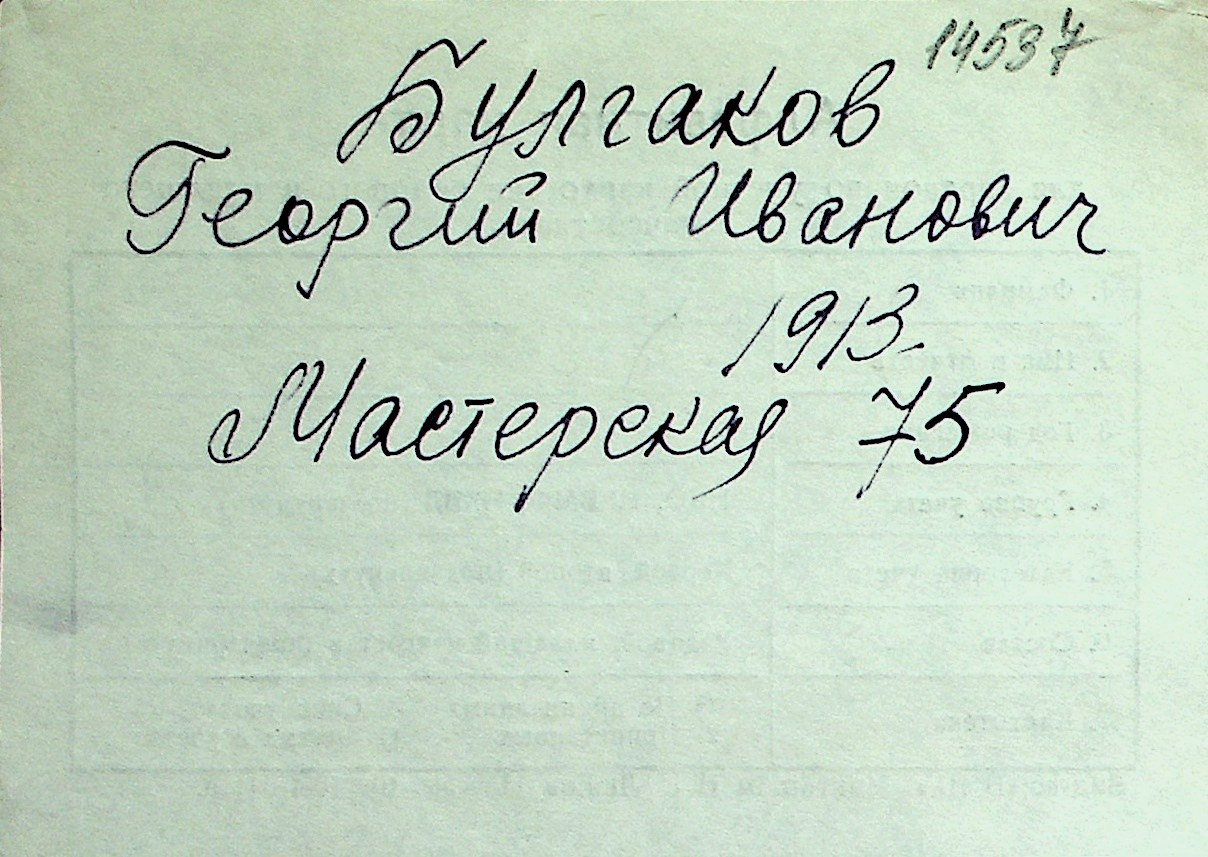 14537
Булгаков
Георгий Иванович
1913.
Мастерская 75